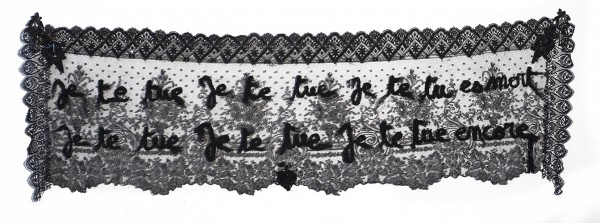 Je te tue Je te tue Je te tu es mort
Je te tue Je te tue Je te tue encore